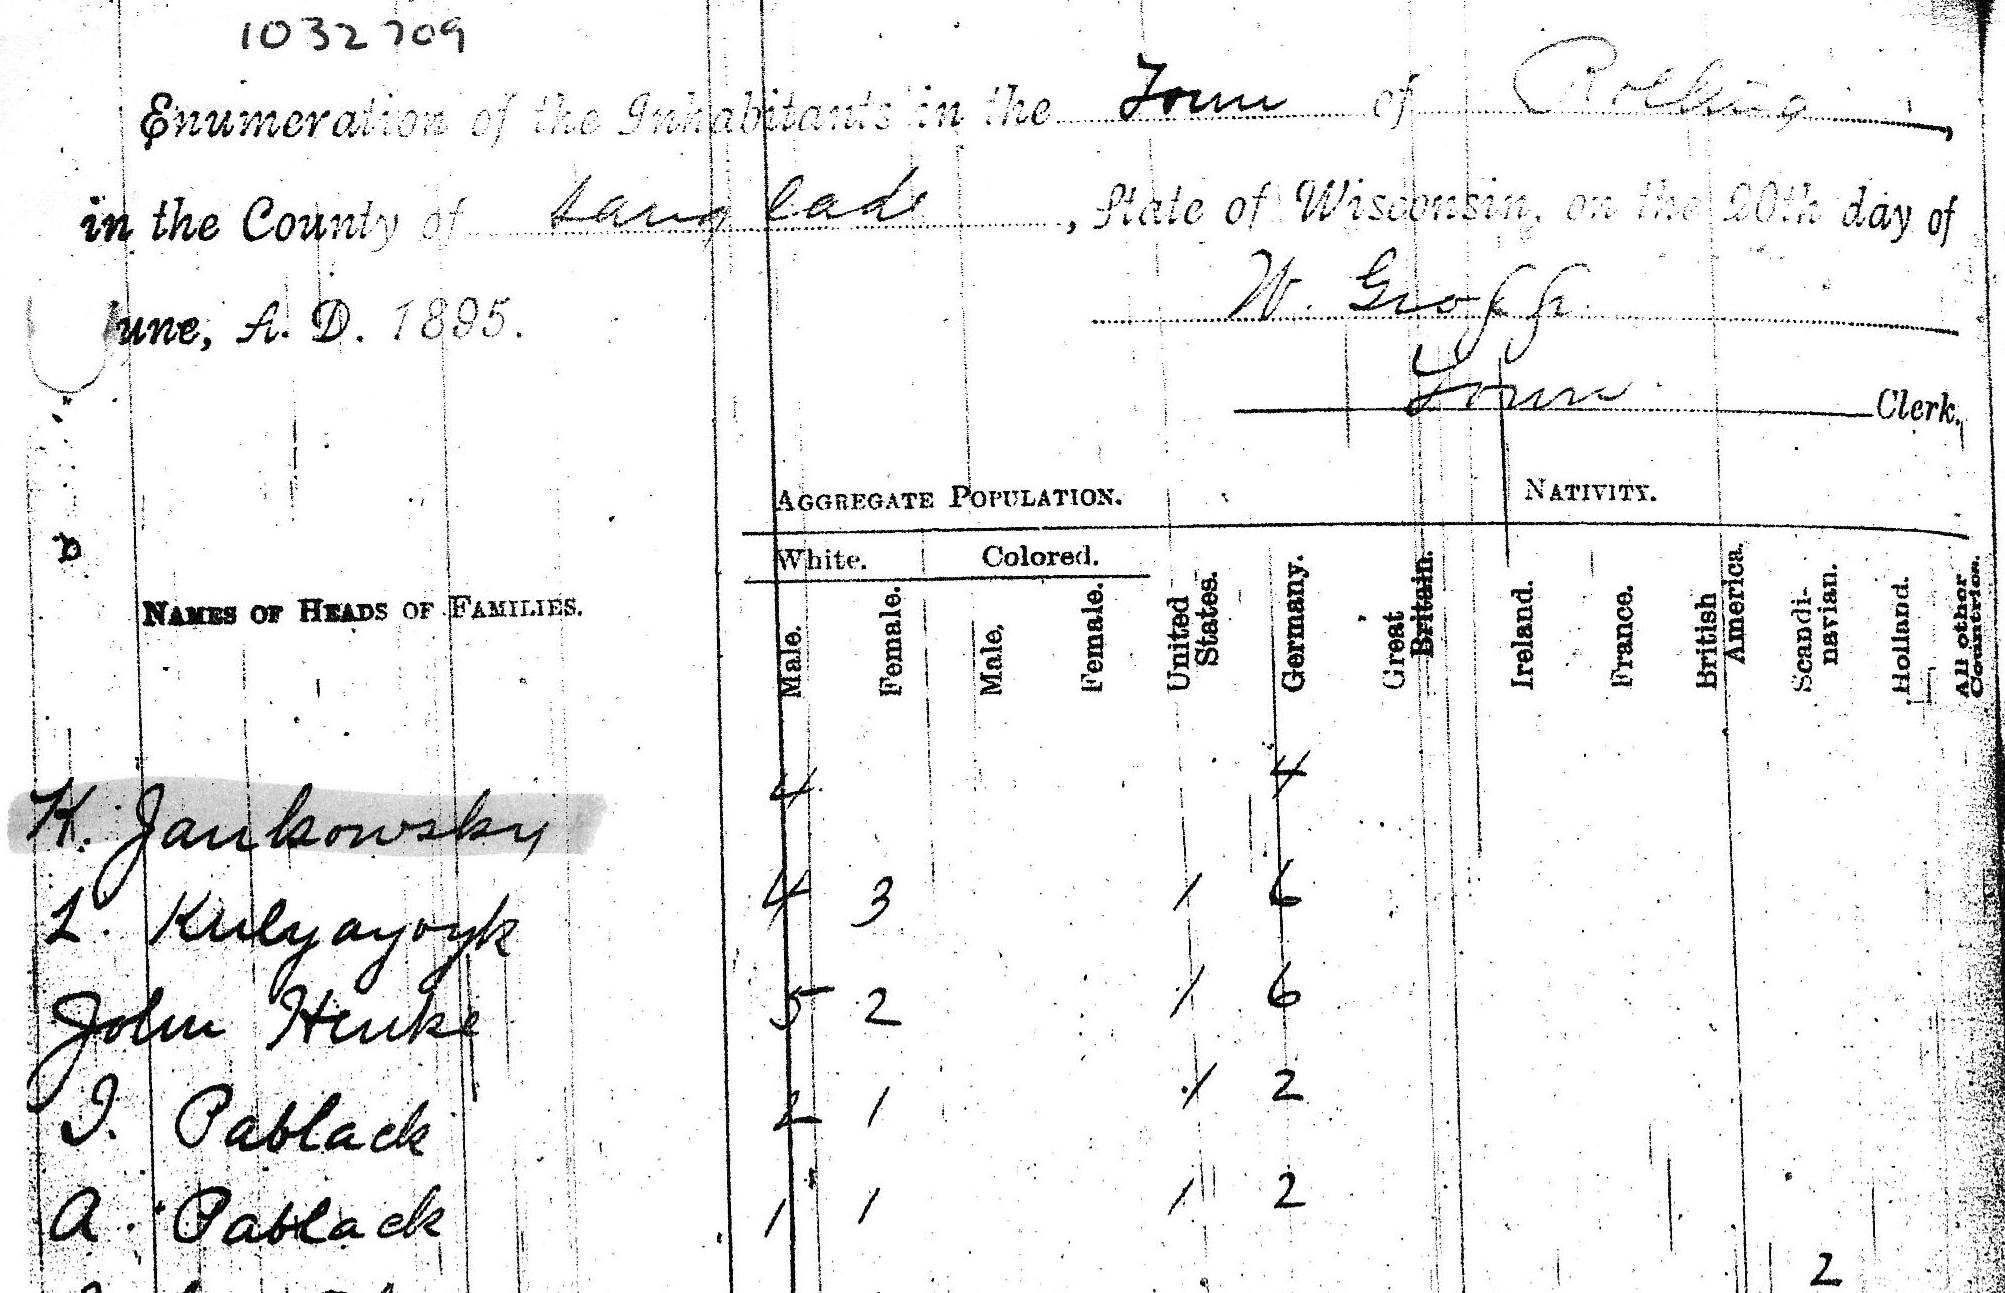 1032709
Enumeration of the Inhabitants in the Town of Rolling,
in the County of Langlade, State of Wisconsin, on the 20th day of
June, A. D. 1895. W. Groff
Town Clerk.
AGGREGATE POPULATION. NATIVITY.
White. Colored.
NAMES OF HEADS OF FAMILIES. Male. Female. Male. Female. United States. Germany. Great Britain. Ireland. France. British America. Scandinavian. Holland. All other Countries.
K. Jankowsky 4 4
L. 4 3 1 6
John Henke 5 2 1 6
I. Pablack 2 1 1 2
A. Pablack 1 1 1 2
2